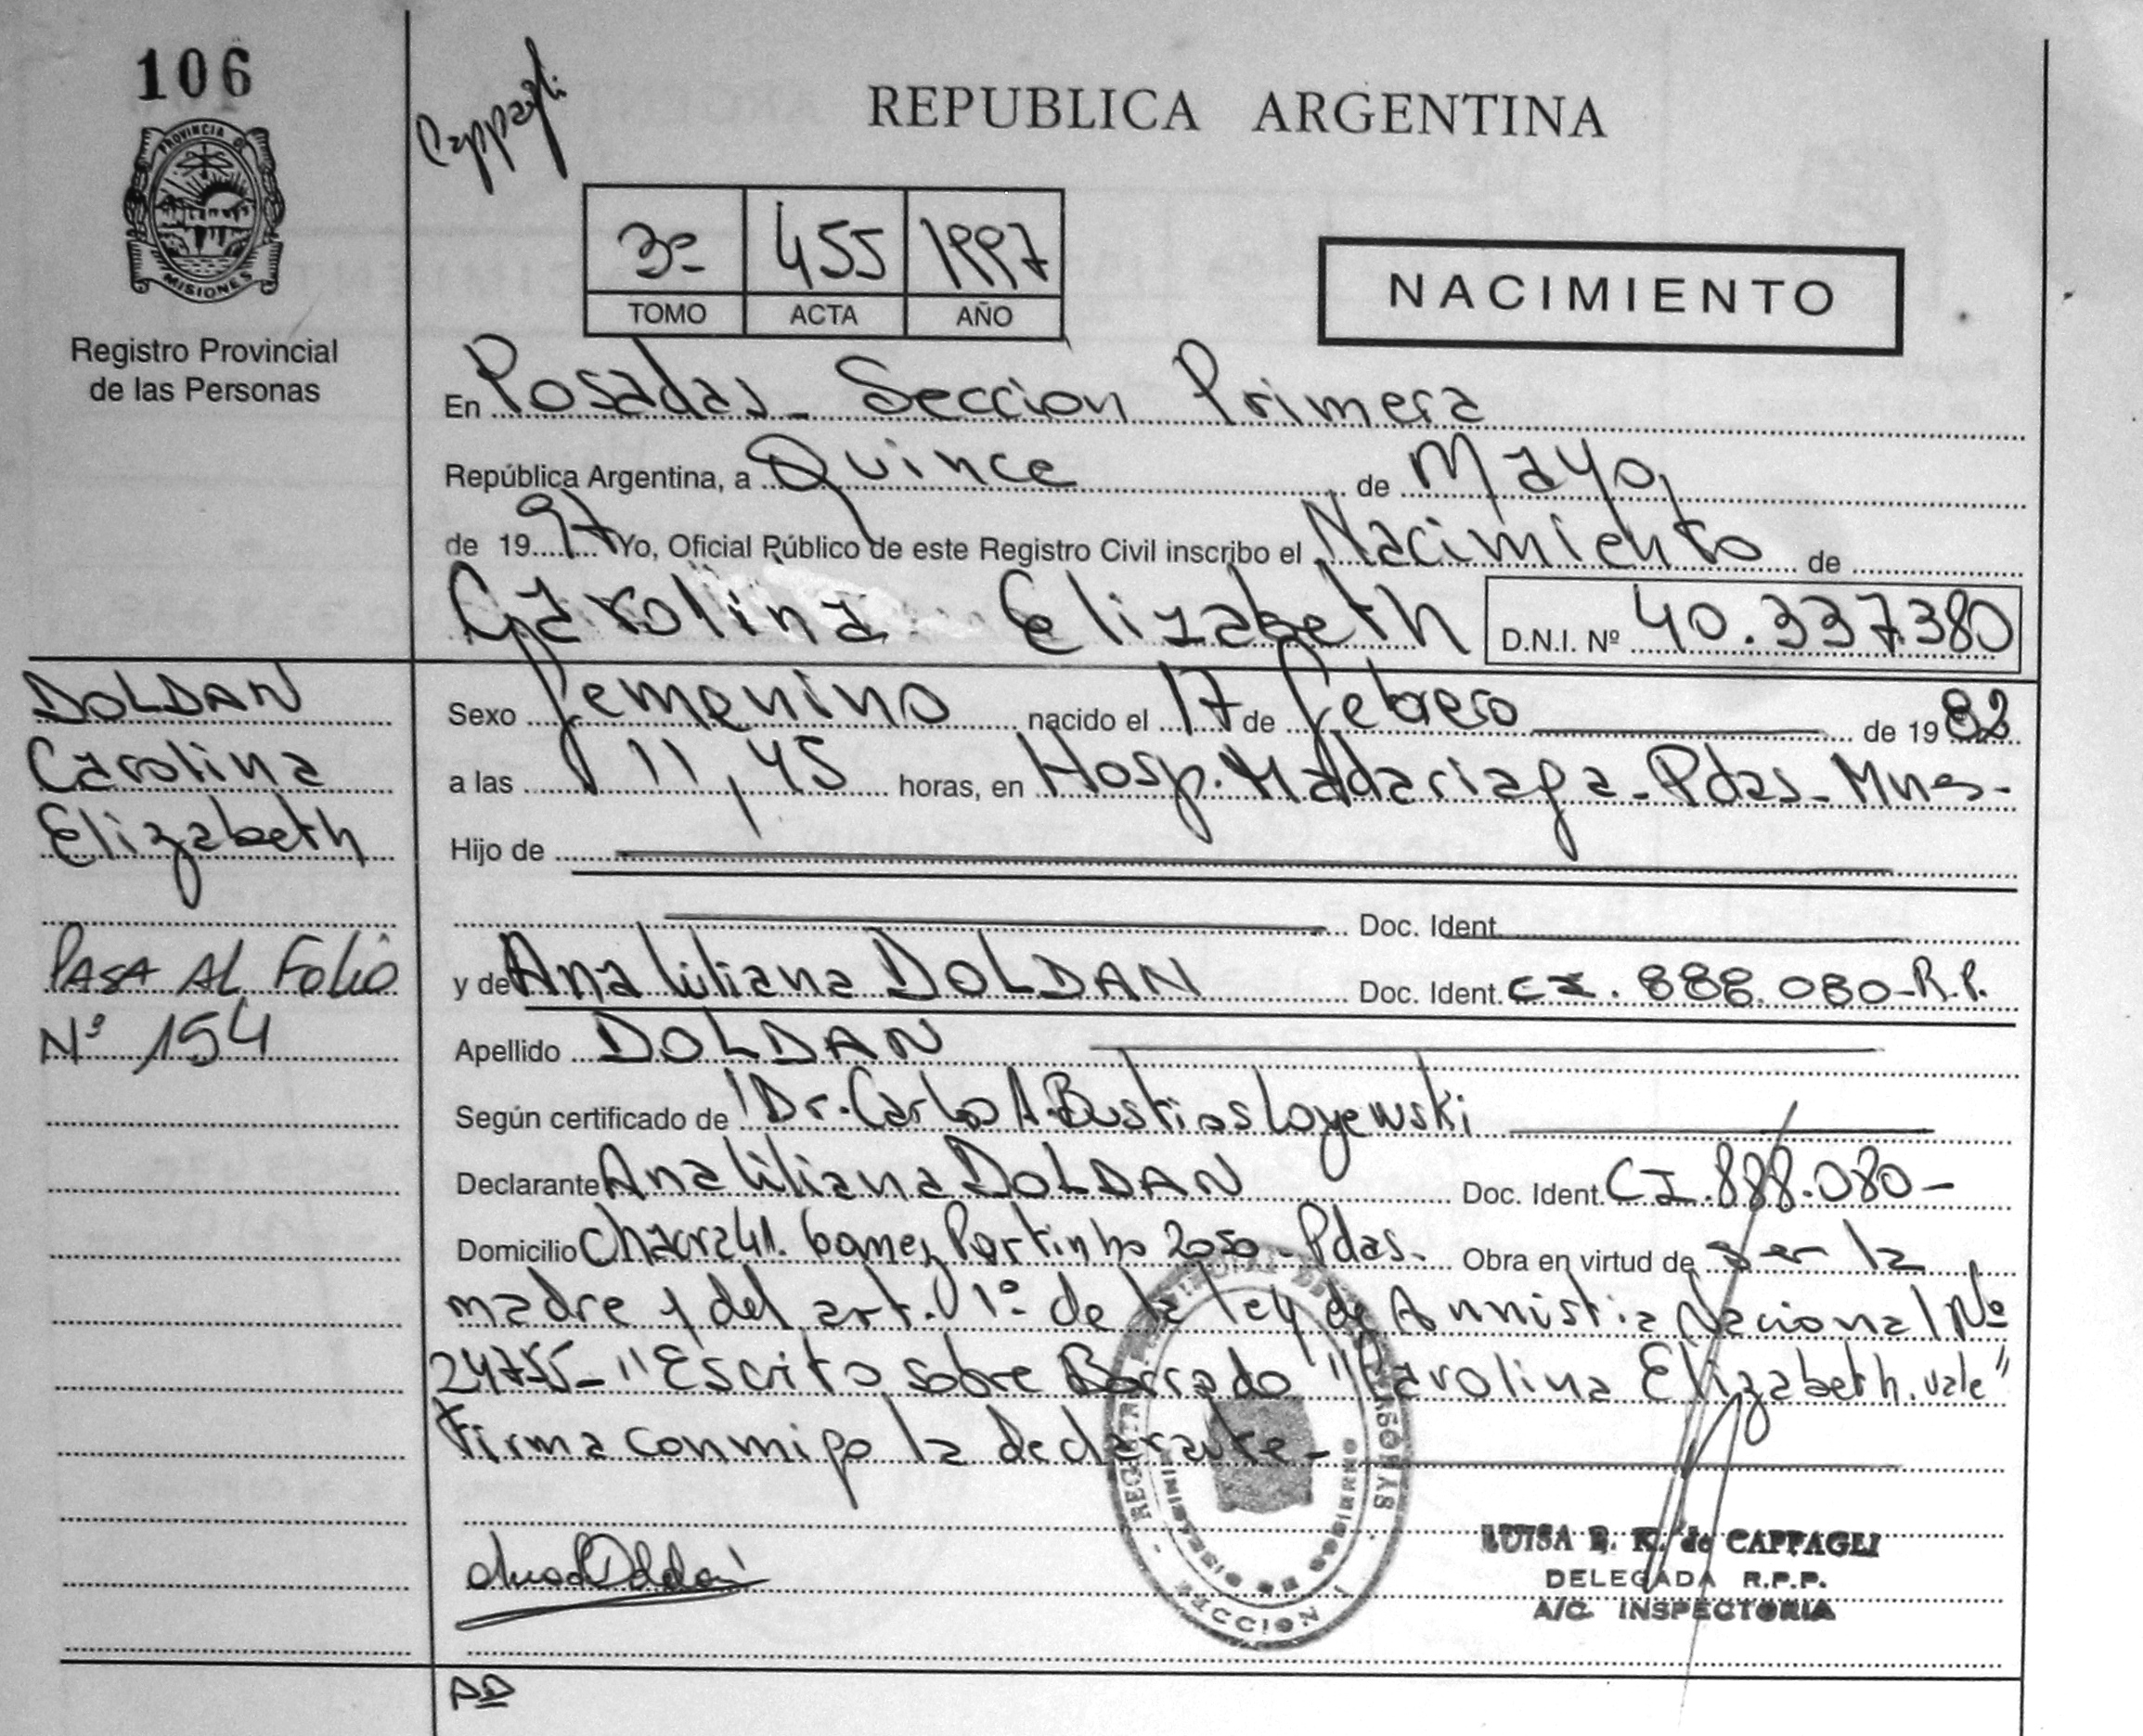 106
PROVINCIA DE
MISIONES
Registro Provincial
de las Personas
Cappagli
REPUBLICA ARGENTINA
3º 455 1997
TOMO ACTA AÑO
NACIMIENTO
En Posadas - Seccion Primera
República Argentina, a Quince de Mayo,
de 1997 Yo, Oficial Público de este Registro Civil inscribo el Nacimiento de
Carolina Elizabeth D.N.I. Nº 40.337.380
DOLDAN
Carolina
Elizabeth
PASA AL FOLIO
Nº 154
Sexo femenino nacido el 17 de febrero de 1982
a las 11,45 horas, en Hosp. Maddariaga - Pdas - Mnes -
Hijo de
Doc. Ident.
y de Ana Liliana DOLDAN Doc. Ident. CI. 888.080 - R.P.
Apellido DOLDAN
Según certificado de Dr. Carlos A. Bustios Loyewski
Declarante Ana Liliana DOLDAN Doc. Ident. CI. 888.080 -
Domicilio Chacra 41. Gomez Portinho 2050 - Pdas. Obra en virtud de ser la
madre y del art. 1º de la ley de Amnistia Nacional Nº
24755 - "Escrito sobre Borrado "Carolina Elizabeth. vale"
Firma conmigo la declarante -
MINISTERIO DE GOBIERNO
SECCION 1
LUISA B. K. de CAPPAGLI
DELEGADA R.P.P.
A/C. INSPECTORIA